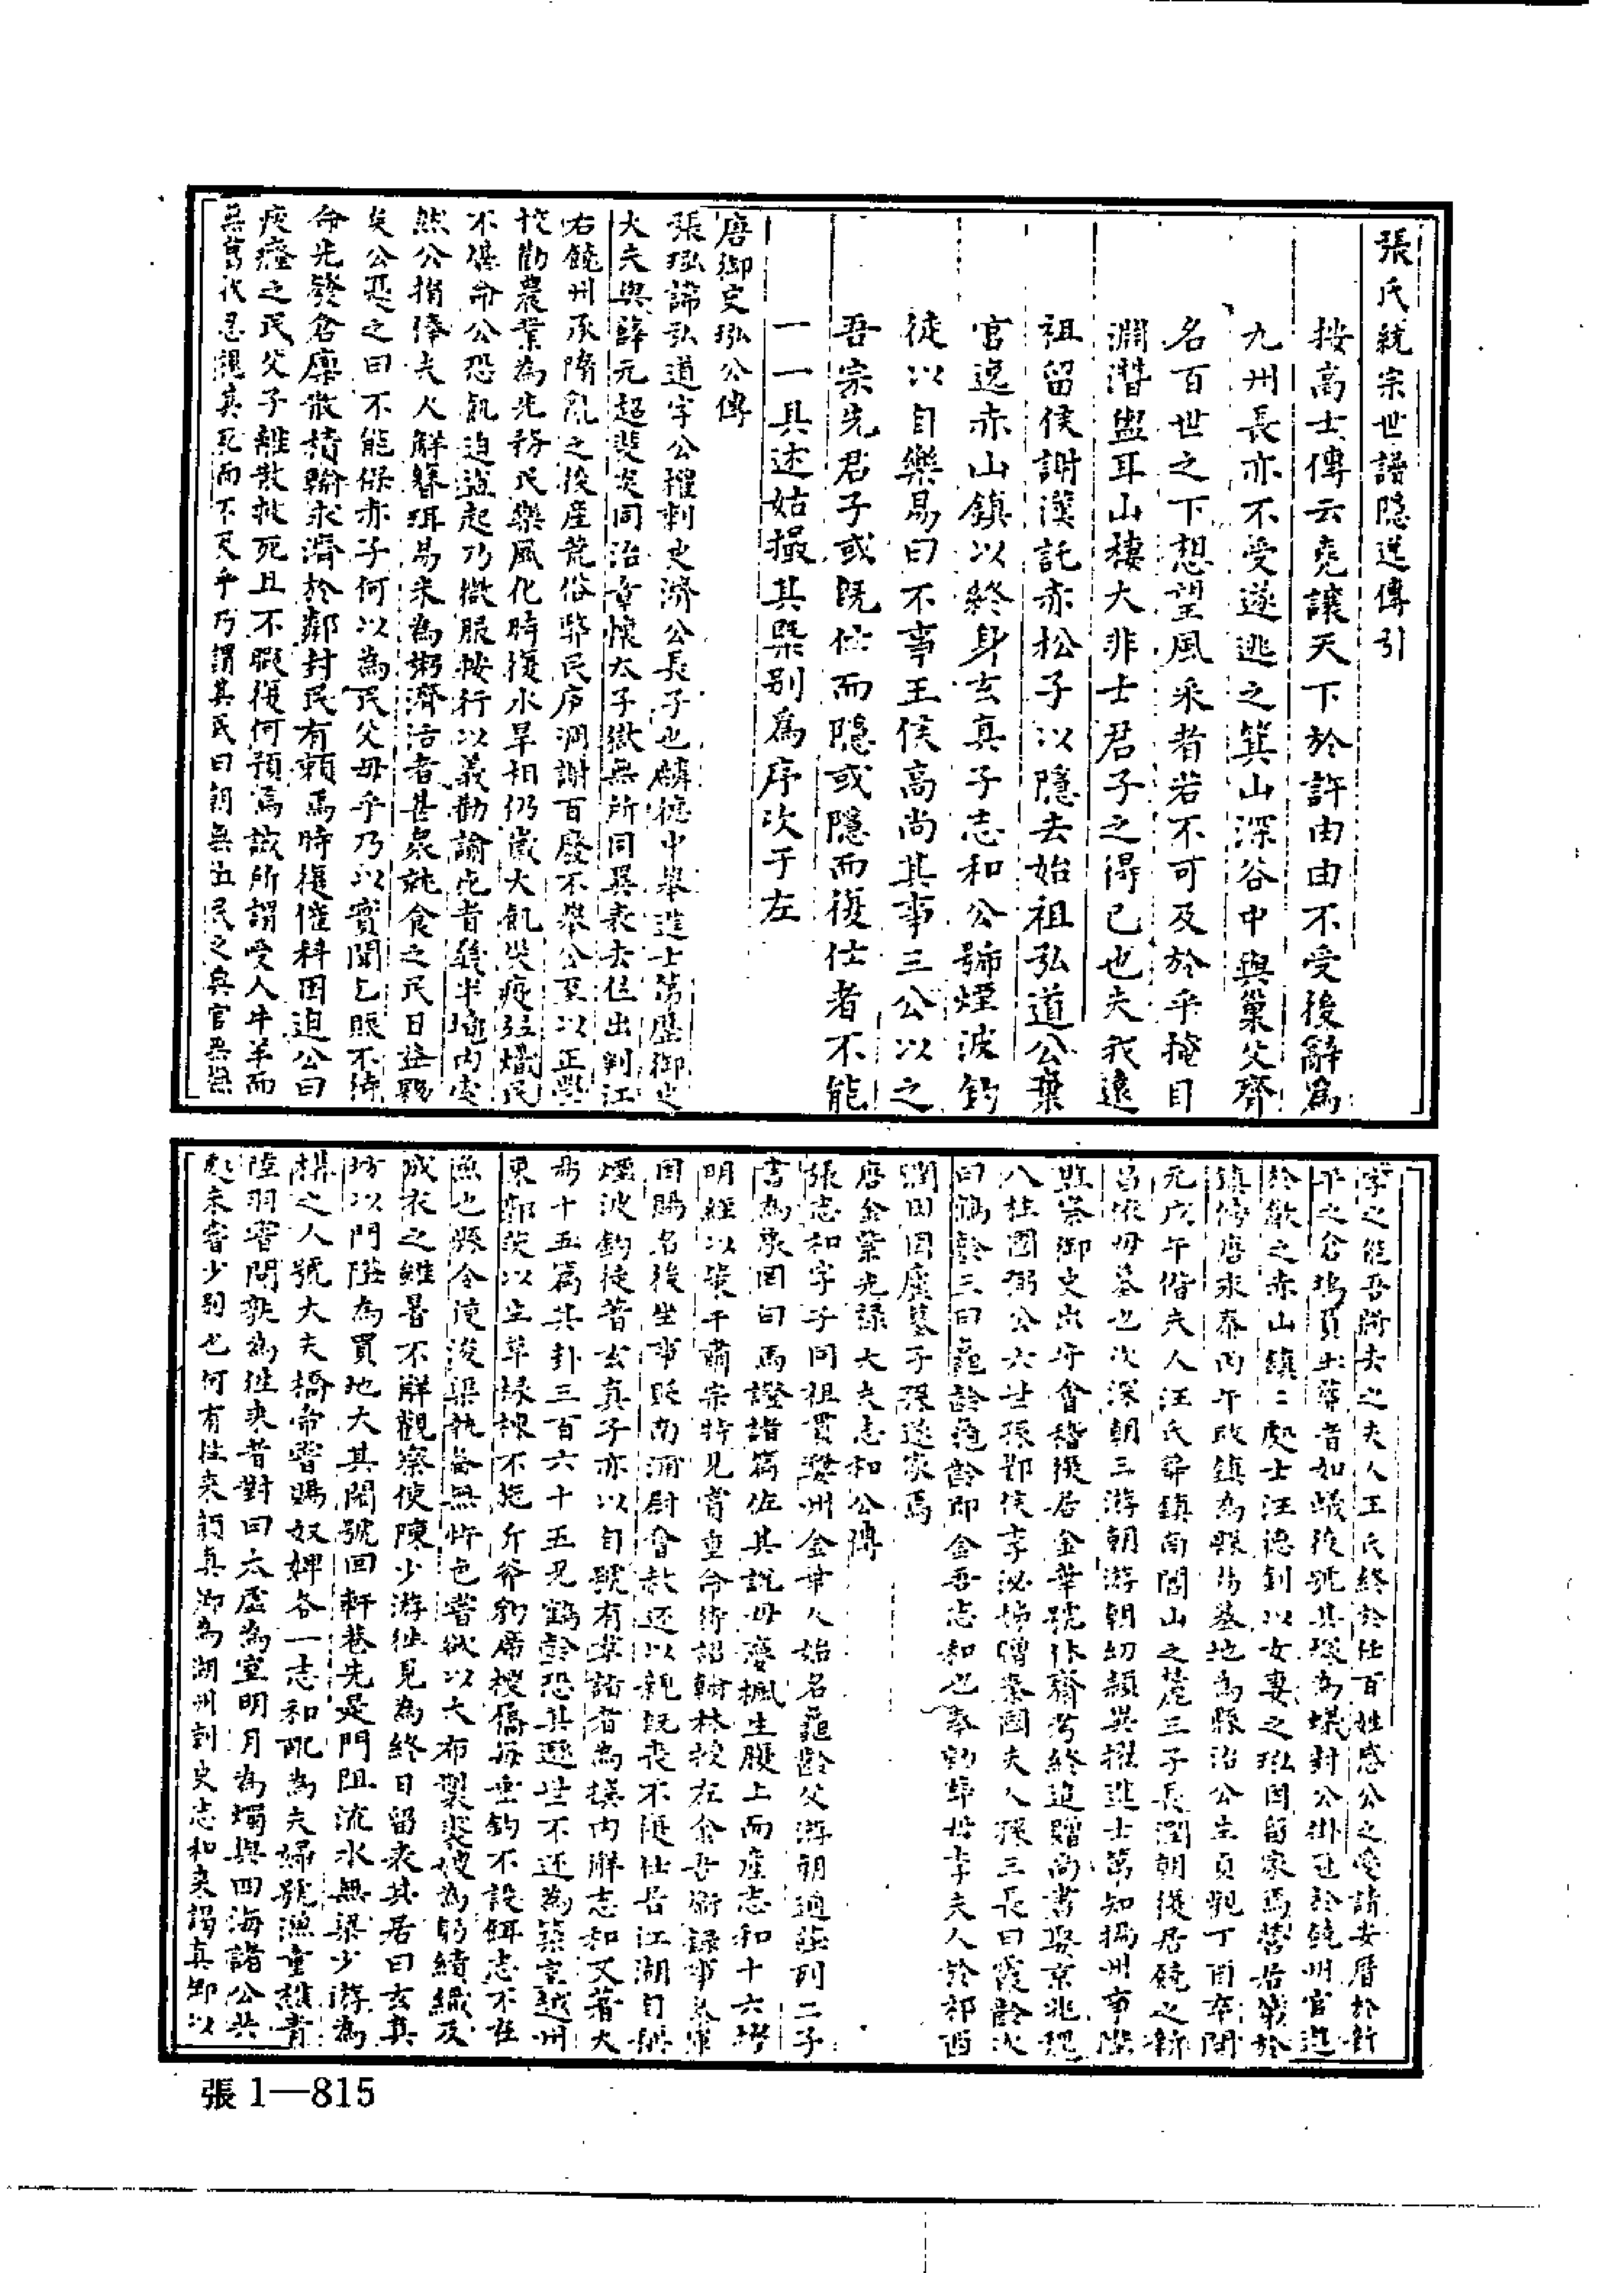 張氏統宗世譜隱逸傳引
按高士傳云堯讓天下於許由由不受後辭爲
九州長亦不受遂逃之箕山深谷中與巢父齊
名百世之下想望風采者若不可及於乎掩目
淵潛盥耳山棲大非士君子之得已也夫我遠
祖留侯謝漢託赤松子以隱去始祖弘道公棄
官逸赤山鎮以終身玄真子志和公號煙波釣
徒以自樂易曰不事王侯高尚其事三公以之
吾宗先君子或既仕而隱或隱而復仕者不能
一一具述姑撮其槩别爲序次于左
唐御史弘公傳
張弘諱弘道字公擢刺史濟公長子也麟德中舉進士第歷御史
大夫與薛元超裴炎同治章懷太子獄無所同異表去位出判江
右饒州承隋亂之後産荒俗弊民庐凋謝百廢不舉公至以正學
校勸農業為先務民樂風化時復水旱相仍嵗大飢哭疫狂熾民
不堪命公恐飢迫盗起乃微服按行以義勸諭屯者發半境内安
然公捐俸夫人解簪珥易米為粥濟活者甚衆就食之民日益夥
矣公憂之曰不能保赤子何以為民父母乎乃以實聞乞賑不待
命先發倉廪散積輸求濟於鄰封民有賴焉時復催科困迫公曰
疾癃之民父子離散救死且不暇復何預焉誠所謂受人牛羊而
無芻代思視其死而不天乎乃謂其民曰朝無血民之與官無無
字之能吾將去之夫人王氏終於仕百姓感公之愛請安厝於新
平之倉塢負土塟者如蟻後號其塚為蟻封公掛冠於饒州官逃
於歙之赤山鎮二處士汪德釗以女妻之弘因留家焉營居第於
鎮傍唐永泰丙午改鎮為縣即基地為縣治公生貞觀丁酉卒開
元戊午偕夫人汪氏葬鎮南閶山之麓三子長潤朝後居饒之新
昌依母墓也次深朝三游朝游朝幼穎異擢進士第知撫州事遷
監察御史出守會稽後居金華號休齋考終追贈尚書娶京兆
八柱國弼公六世孫鄴侯李泌姊贈秦國夫人孫三長曰霞齡次
曰鶴齡三曰龜齡龜齡即金吾志和也奉勅葬母李夫人於祁西
潤田因廬墓子孫遂家焉
唐金紫光祿大夫志和公傳
張志和字子同祖貫婺州金華人始名龜齡父游朝通莊列二子
書為象罔白馬證諸篇佐其說母慶楓生腹上而産志和十六擢
明經以策干肅宗特見賞重命待詔翰林授左金吾衛録事參軍
因賜名後坐事貶南浦尉會赦还以親既丧不復仕居江湖自稱
煙波釣徒著玄真子亦以自號有韋詣者為撰内解志和又著大
易十五篇其卦三百六十五兄鶴齡恐其遯世不还為築室越州
東郭茨以生草椽棟不施斤斧豹席椶屩每垂釣不設餌志不在
魚也縣令使浚渠執畚無忤色嘗欲以大布製裘嫂為躬績織及
成衣之雖暑不解觀察使陳少游往見為終日留表其居曰玄真
坊以門隘為買地大其閎號回軒巷先是門阻流水無梁少游為
構之人號大夫橋帝嘗賜奴婢各一志和配為夫婦號漁童樵青
陸羽嘗問孰為往來者對曰太虛為室明月為燭與四海諸公共
處未嘗少别也何有往來顔真卿為湖州刺史志和來謁真卿以
張1—815